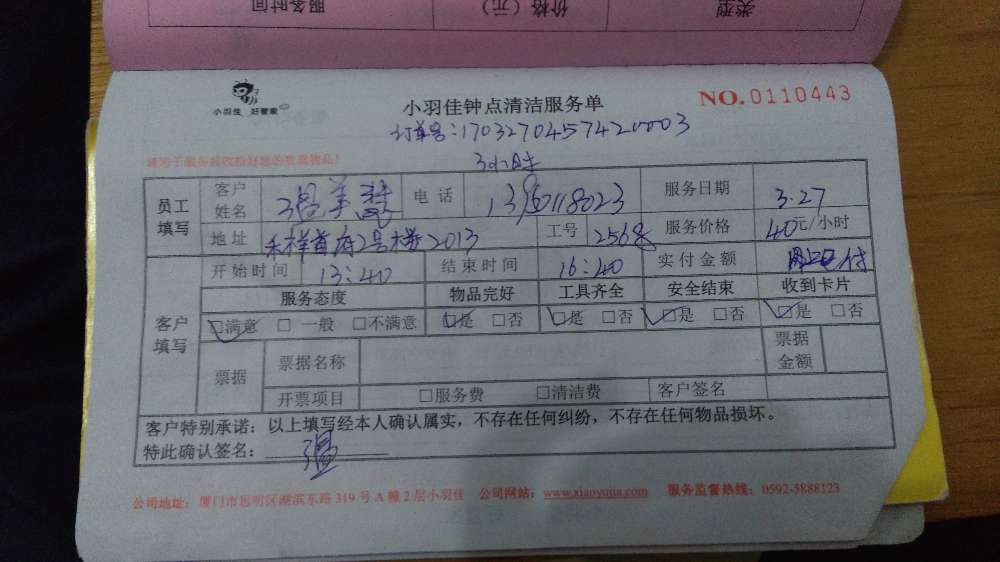 服务时间 价格（元） 类型
小羽佳 好管家
小羽佳钟点清洁服务单
NO.0110443
订单号：1703270457420003
3小时
员工填写 客户姓名 电话 服务日期 3.27
地址 禾祥首府2号楼2013 工号 服务价格 40元/小时
客户填写 开始时间 13:40 结束时间 16:40 实付金额
服务态度 物品完好 工具齐全 安全结束 收到卡片
☑满意 □一般 □不满意 ☑是 □否 ☑是 □否 ☑是 □否 ☑是 □否
票据 票据名称 票据金额
开票项目 □服务费 □清洁费 客户签名
客户特别承诺：以上填写经本人确认属实，不存在任何纠纷，不存在任何物品损坏。
特此确认签名：
公司地址：厦门市思明区湖滨东路 319 号 A 幢 2 层小羽佳 公司网站：www.xiaoyujia.com 服务监督热线：0592-5888123